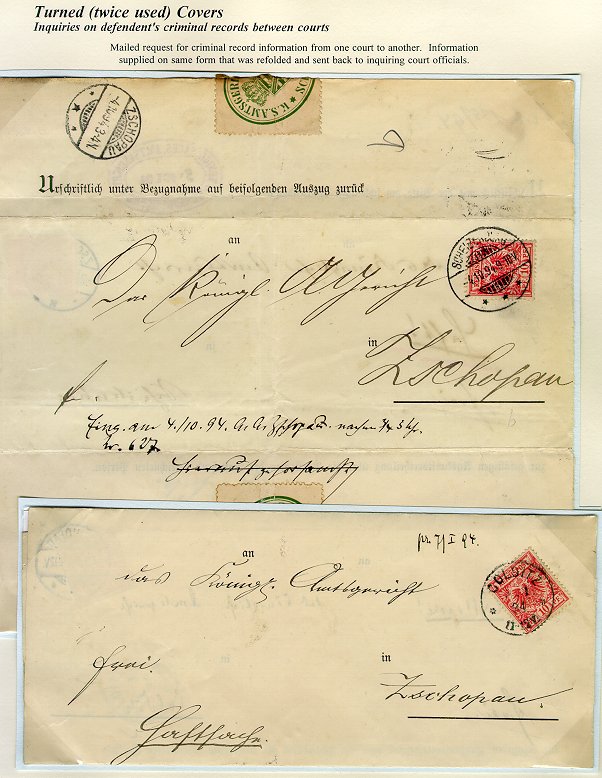 Turned (twice used) Covers
Inquiries on defendent's criminal records between courts
Mailed request for criminal record information from one court to another. Information
supplied on same form that was refolded and sent back to inquiring court officials.
ZSCHOPAU
4.10.94.3-4N.
K.S.AMTSGER
Urschriftlich unter Bezugnahme auf beifolgenden Auszug zurück
an
Das Königl. AGericht
in
Zschopau
Eing. am 4./10. 94. A. G. Zschopau. nachm. 3
Nr. 627.
an
pr. 7/I 94.
das Königl. Amtsgericht
COLDITZ
frei.
in
Zschopau.
Haftsache.